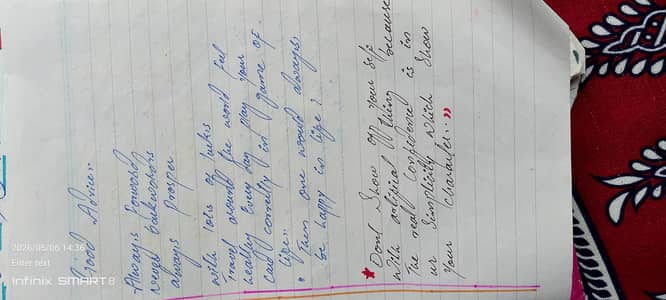 Good Advice:
Always Forword
never backwords
always Prosper
with lots of lucks
Travel around the world feel
healthy Every day Play your
card correctly in game of
life..
Turn one would always
be happy in life!
Dont Show off your self
with artificial thing because
The really confidence is in
ur Simplicity which Show
your Character..”
2026/05/06 14:36
Enter text
Infinix SMART 8